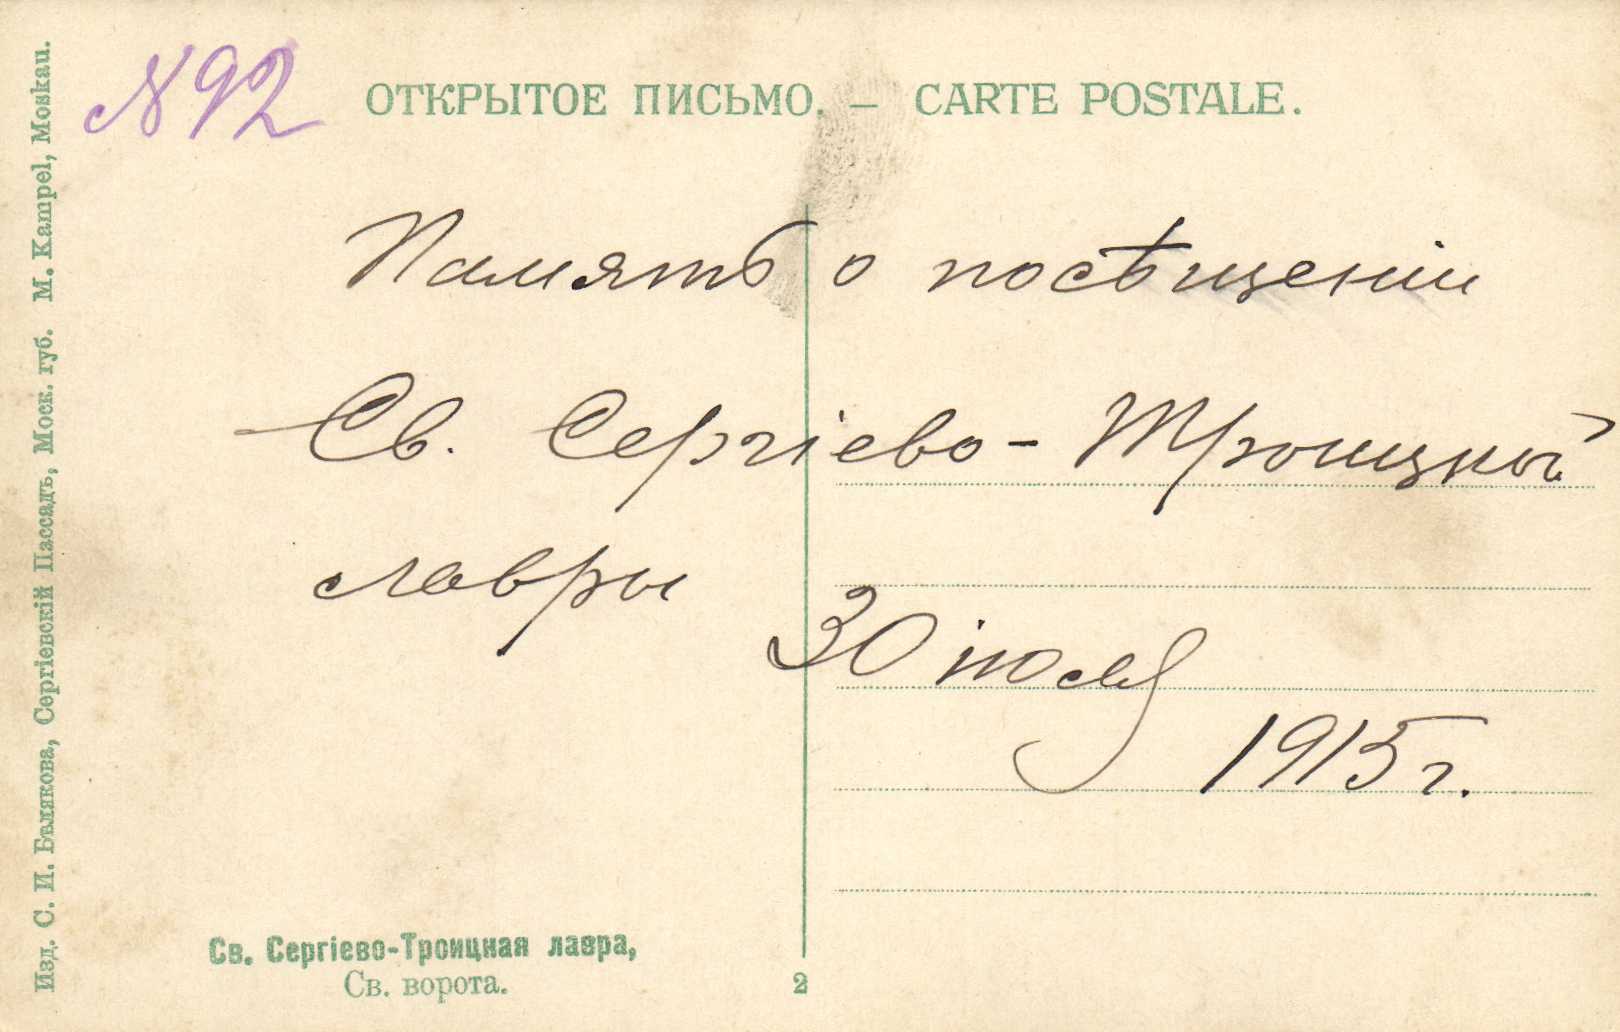 N 92
ОТКРЫТОЕ ПИСЬМО. — CARTE POSTALE.
Память о посѣщеніи
Св. Сергіево-Троицкой
лавры
30 іюля
1915 г.
Св. Сергіево-Троицкая лавра,
Св. ворота.
2
Изд. С. И. Бѣлякова, Сергіевскій Пассадъ, Моск. губ. М. Kampel, Moskau.